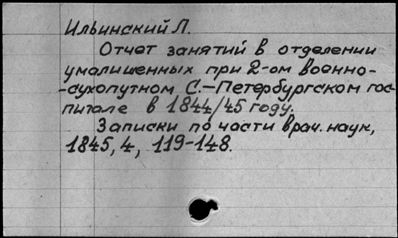 Ильинский Л.
Отчет занятий в отделении
умалишенных при 2-ом военно-
-сухопутном С.-Петербургском гос-
питале в 1844/45 году.
Записки по части врач. наук,
1845, 4, 119-148.